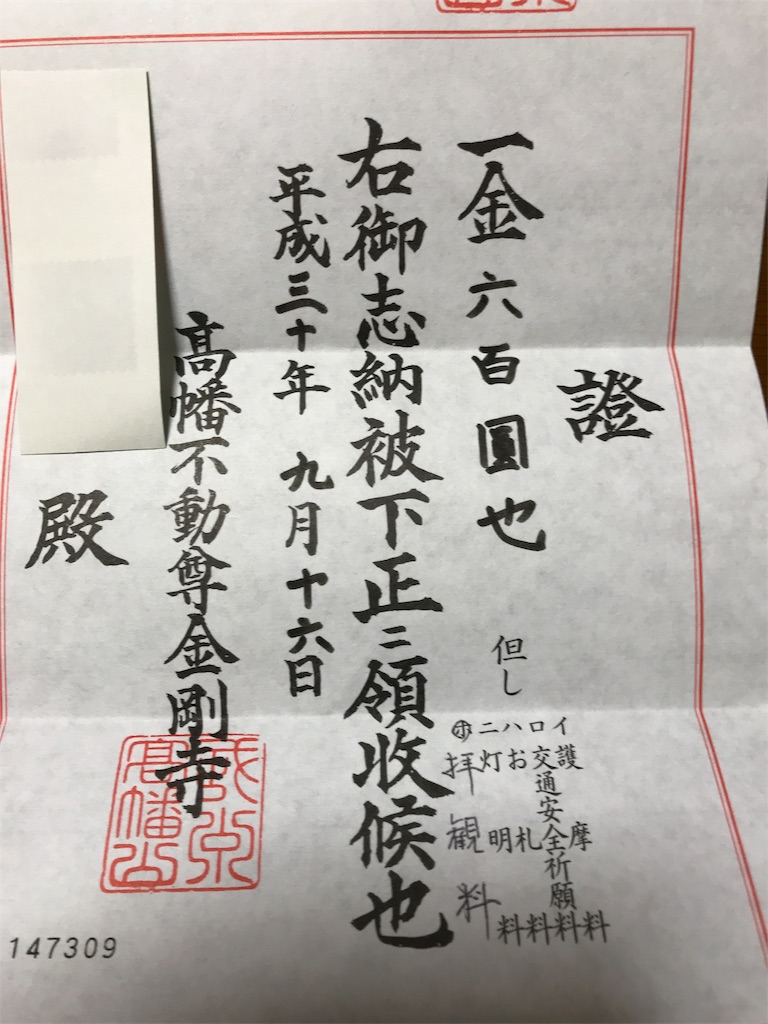 證
一金六百圓也
但し
イ護摩料
ロ交通安全祈願料
ハお札料
ニ灯明料
㋭拝観料
右御志納被下正ニ領收候也
平成三十年 九月十六日
髙幡不動尊金剛寺
殿
147309